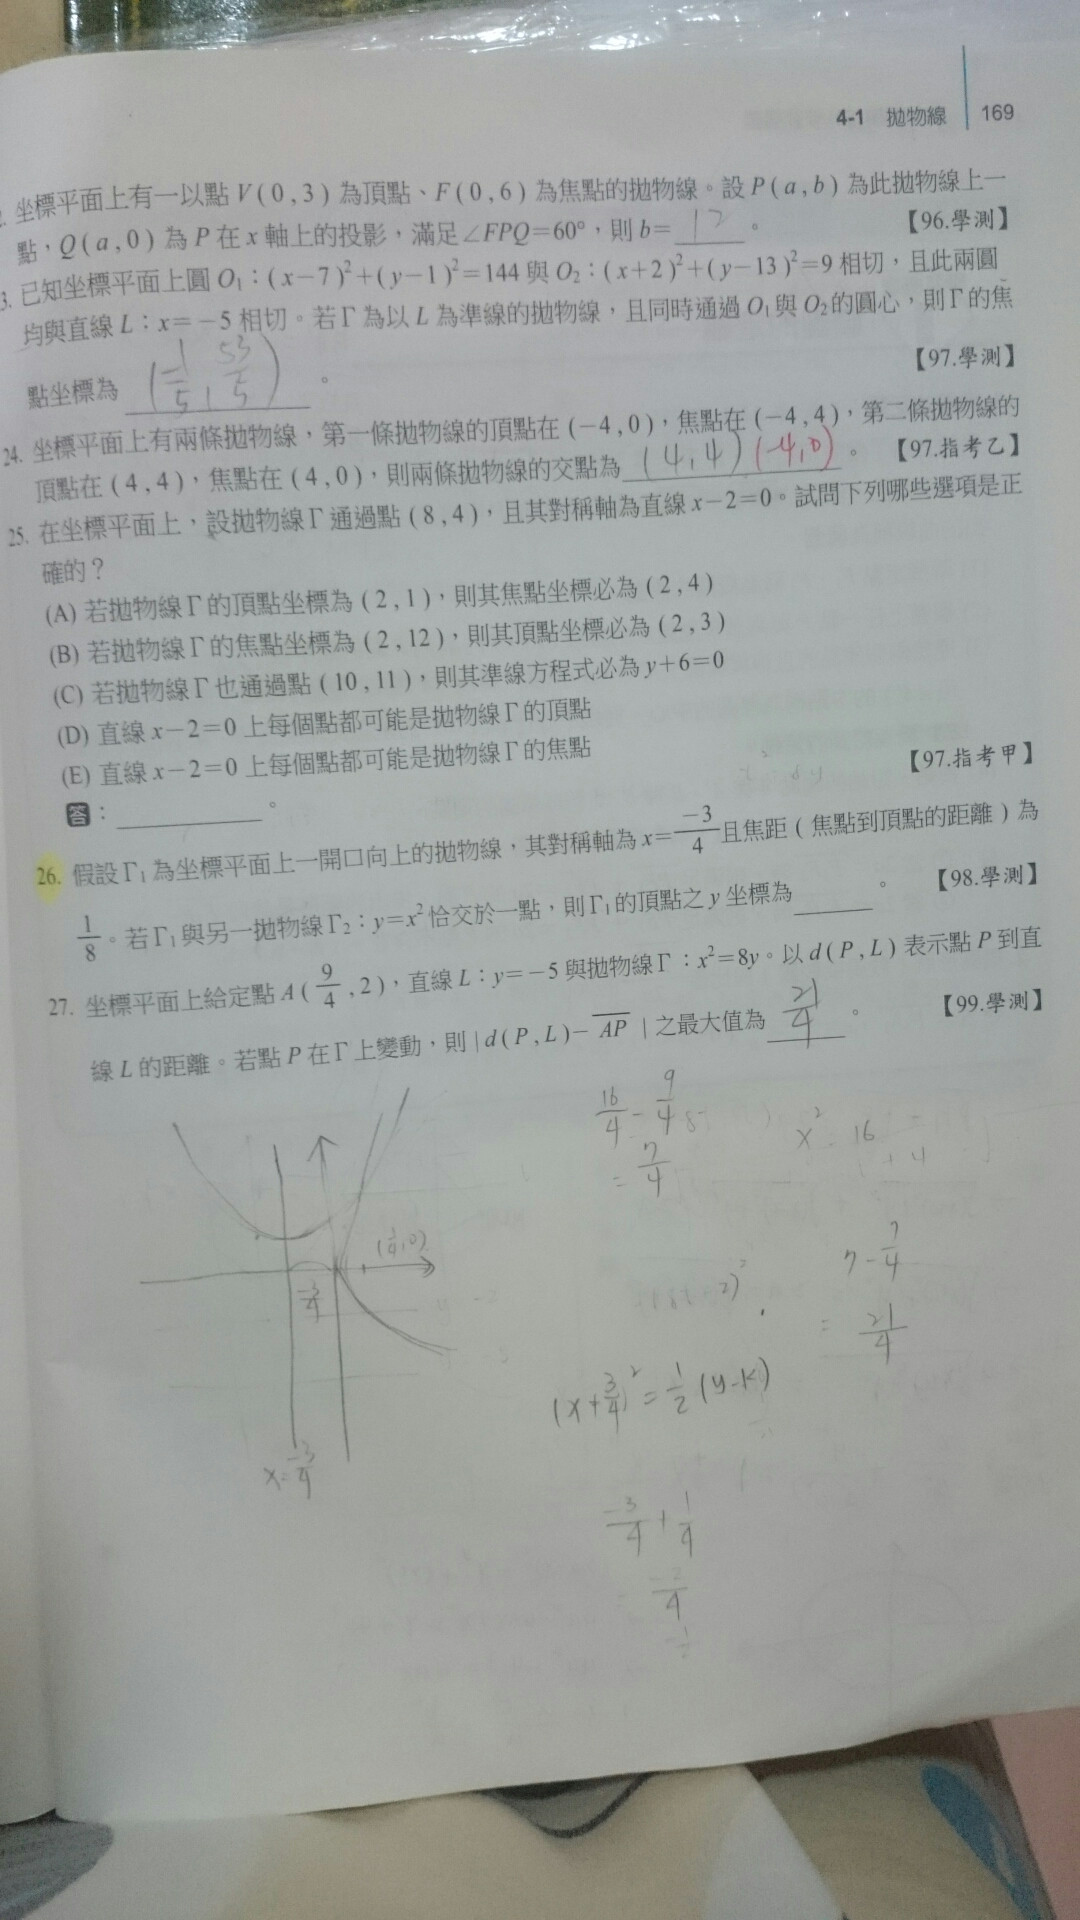 4-1 拋物線 169
坐標平面上有一以點 V(0,3) 為頂點、F(0,6) 為焦點的拋物線。設 P(a,b) 為此拋物線上一
點,Q(a,0) 為 P 在 x 軸上的投影,滿足∠FPQ=60°,則 b= 12 。 【96.學測】
3. 已知坐標平面上圓 O₁:(x−7)²+(y−1)²=144 與 O₂:(x+2)²+(y−13)²=9 相切,且此兩圓
均與直線 L:x=−5 相切。若Γ為以 L 為準線的拋物線,且同時通過 O₁與 O₂的圓心,則Γ的焦
點坐標為 (−1/5, 53/5) 。 【97.學測】
24. 坐標平面上有兩條拋物線,第一條拋物線的頂點在 (−4,0),焦點在 (−4,4),第二條拋物線的
頂點在 (4,4),焦點在 (4,0),則兩條拋物線的交點為 (4,4) (−4,0) 。 【97.指考乙】
25. 在坐標平面上,設拋物線Γ通過點 (8,4),且其對稱軸為直線 x−2=0。試問下列哪些選項是正
確的?
(A) 若拋物線Γ的頂點坐標為 (2,1),則其焦點坐標必為 (2,4)
(B) 若拋物線Γ的焦點坐標為 (2,12),則其頂點坐標必為 (2,3)
(C) 若拋物線Γ也通過點 (10,11),則其準線方程式必為 y+6=0
(D) 直線 x−2=0 上每個點都可能是拋物線Γ的頂點
(E) 直線 x−2=0 上每個點都可能是拋物線Γ的焦點 【97.指考甲】
答: 。
26. 假設Γ₁為坐標平面上一開口向上的拋物線,其對稱軸為 x=−3/4 且焦距(焦點到頂點的距離)為
1/8。若Γ₁與另一拋物線Γ₂:y=x²恰交於一點,則Γ₁的頂點之 y 坐標為 。 【98.學測】
27. 坐標平面上給定點 A(9/4,2),直線 L:y=−5 與拋物線Γ:x²=8y。以 d(P,L) 表示點 P 到直
線 L 的距離。若點 P 在Γ上變動,則 |d(P,L)−AP| 之最大值為 21/4 。 【99.學測】
16/4 − 9/4
= 7/4
x² = 16
7−7/4
= 21/4
−3/4
(x+3/4)² = 1/2(y−k)
x=−3/4
−3/4 + 1/4
−2/4